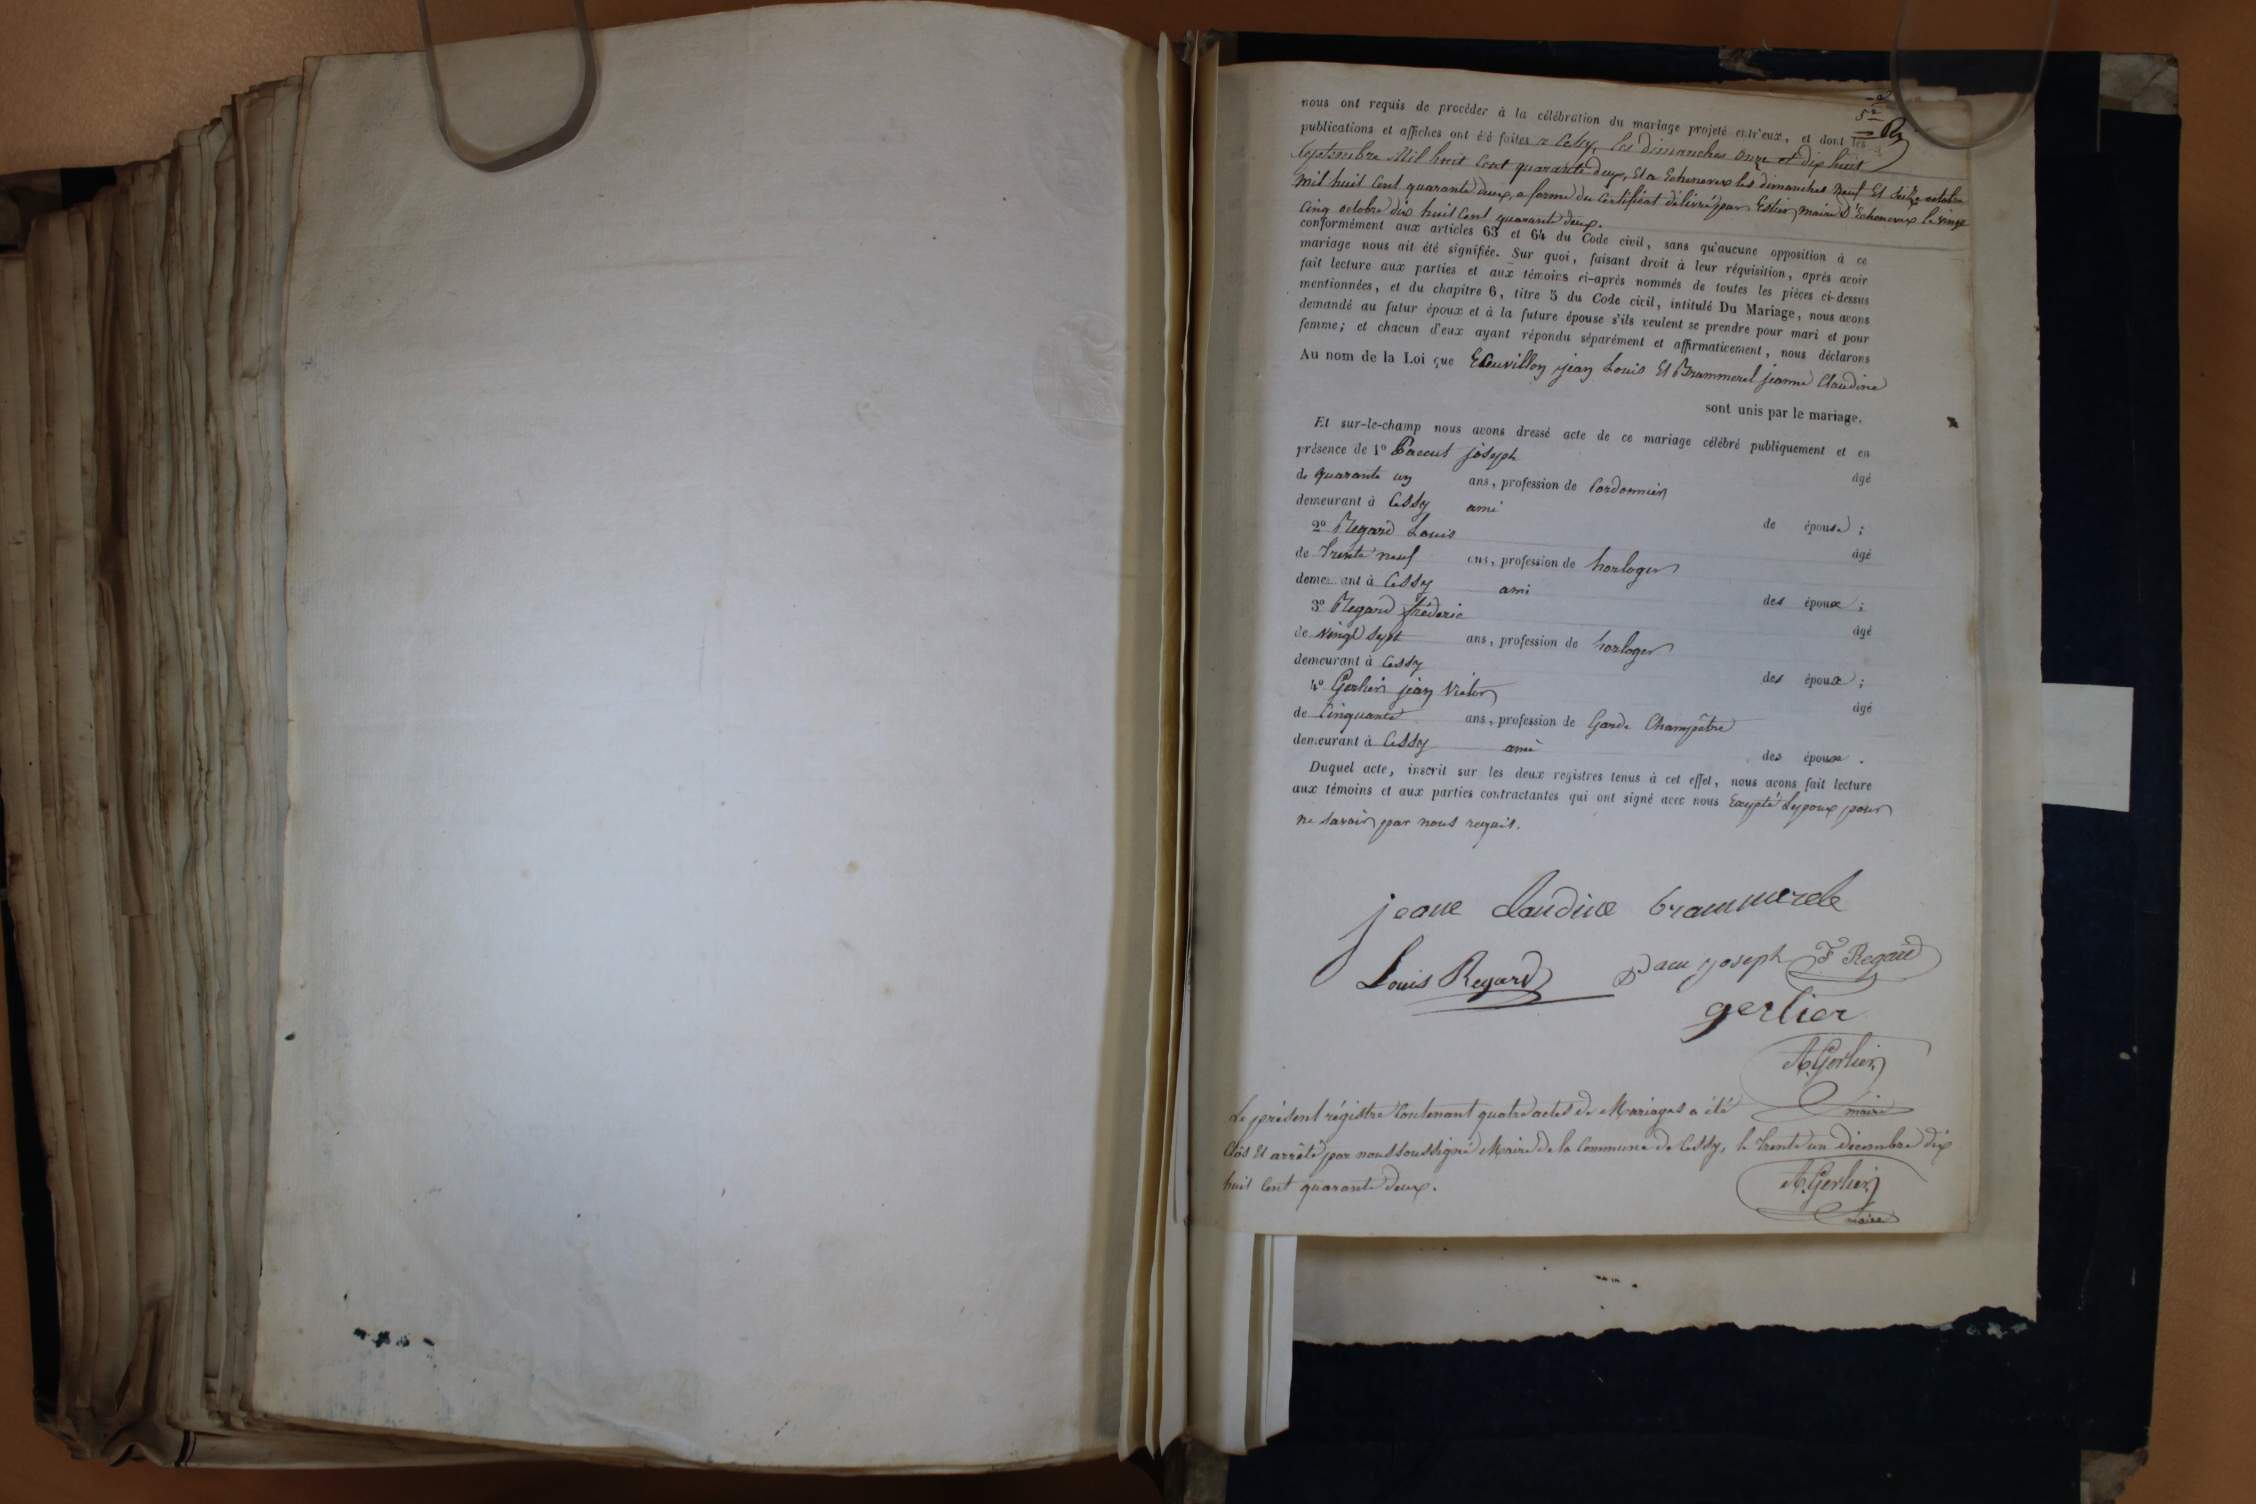 5e
nous ont requis de procéder à la célébration du mariage projeté entr'eux, et dont les
publications et affiches ont été faites a Cessy, les dimanches onze et dix huit
Septembre Mil huit Cent quarante deux, Et a Echenevex les dimanches Neuf Et Seize octobre
Mil huit Cent quarante deux, a forme du Certificat délivré par Estier, maire D'Echenevex le vingt
Cinq octobre dix huit Cent quarante deux.
conformément aux articles 63 et 64 du Code civil, sans qu'aucune opposition à ce
mariage nous ait été signifiée. Sur quoi, faisant droit à leur réquisition, après avoir
fait lecture aux parties et aux témoins ci-après nommés de toutes les pièces ci-dessus
mentionnées, et du chapitre 6, titre 5 du Code civil, intitulé Du Mariage, nous avons
demandé au futur époux et à la future épouse s'ils veulent se prendre pour mari et pour
femme; et chacun d'eux ayant répondu séparément et affirmativement, nous déclarons
Au nom de la Loi que Ecuvillon jean Louis Et Brammerel jeanne Claudine
sont unis par le mariage.
Et sur-le-champ nous avons dressé acte de ce mariage célébré publiquement et en
présence de 1º joseph âgé
de quarante un ans, profession de Cordonnier
demeurant à Cessy ami de épouse ;
2º Regard Louis âgé
de trente neuf ans, profession de horloger
demeurant à Cessy ami des époux ;
3º Regard fréderic âgé
de vingt sept ans, profession de horloger
demeurant à Cessy des époux ;
4º Gerlier jean Victor âgé
de Cinquante ans, profession de Garde Champêtre
demeurant à Cessy ami des époux .
Duquel acte, inscrit sur les deux registres tenus à cet effet, nous avons fait lecture
aux témoins et aux parties contractantes qui ont signé avec nous Excepté Lepoux pour
ne savoir par nous requis.
jeane Claudine brammerele
Louis Regard joseph F Regard
gerlier
A. Gerlier
maire
Le présent régistre Contenant quatre actes de Mariages a été
Clôs Et arrêté par nous soussigné Maire de la Commune de Cessy, le trente un décembre dix
huit Cent quarante deux.
A. Gerlier
maire